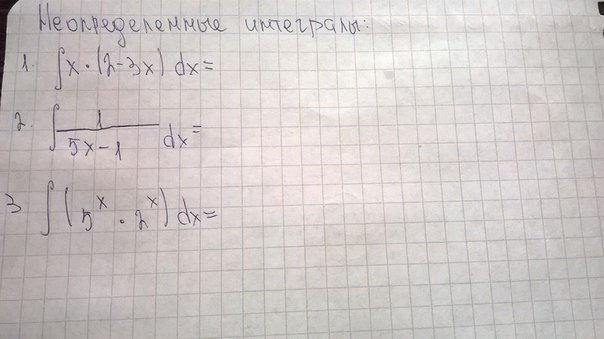 Неопределенные интегралы:
1. ∫x·(2-3x) dx=
2. ∫1/(5x-1) dx=
3 ∫(5^x · 2^x) dx=